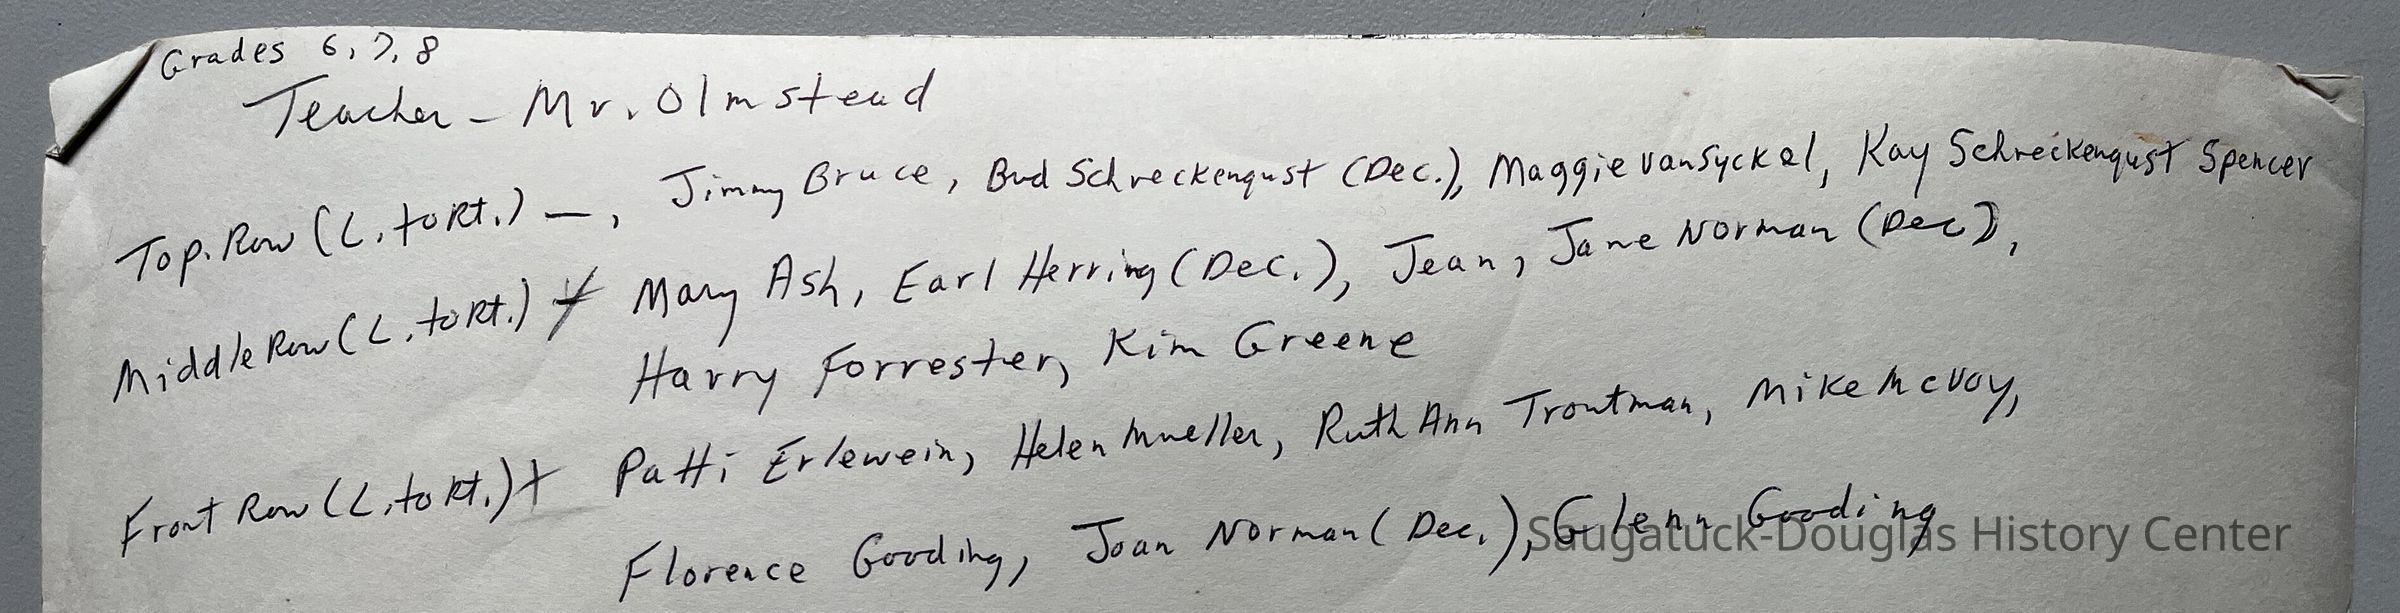 Grades 6, 7, 8
Teacher - Mr. Olmstead
Top. Row (L. to Rt.) —, Jimmy Bruce, Bud Schreckengust (Dec.), Maggie VanSyckel, Kay Schreckengust Spencer
Middle Row (L. to Rt.) Mary Ash, Earl Herring (Dec.), Jean, Jane Norman (Dec),
Harry Forrester, Kim Greene
Front Row (L. to Rt.) Patti Erlewein, Helen Mueller, Ruth Ann Troutman, Mike McVoy,
Florence Gooding, Joan Norman (Dec.), Glenn Gooding
Saugatuck-Douglas History Center